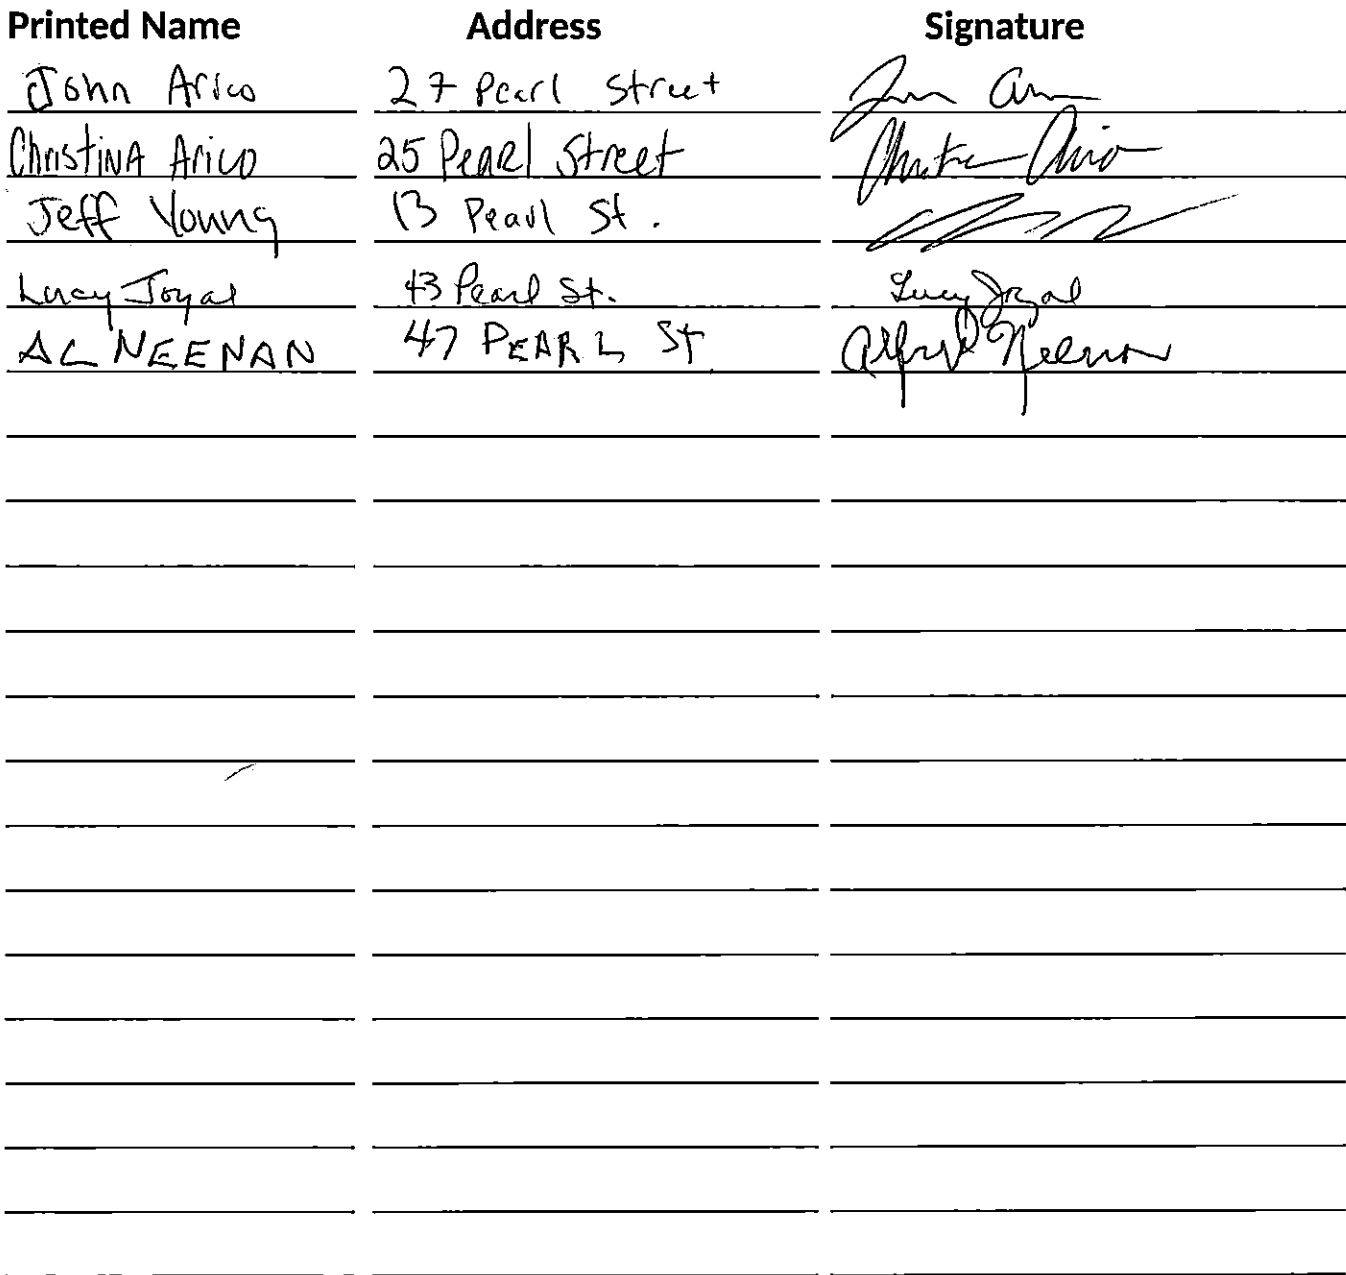 Printed Name Address Signature
John Arico 27 Pearl Street
Christina Arico 25 Pearl Street Christina Arico
Jeff Young 13 Pearl St.
Lucy Joyal 43 Pearl St. Lucy Joyal
AL NEENAN 47 PEARL St Alfred Neenan